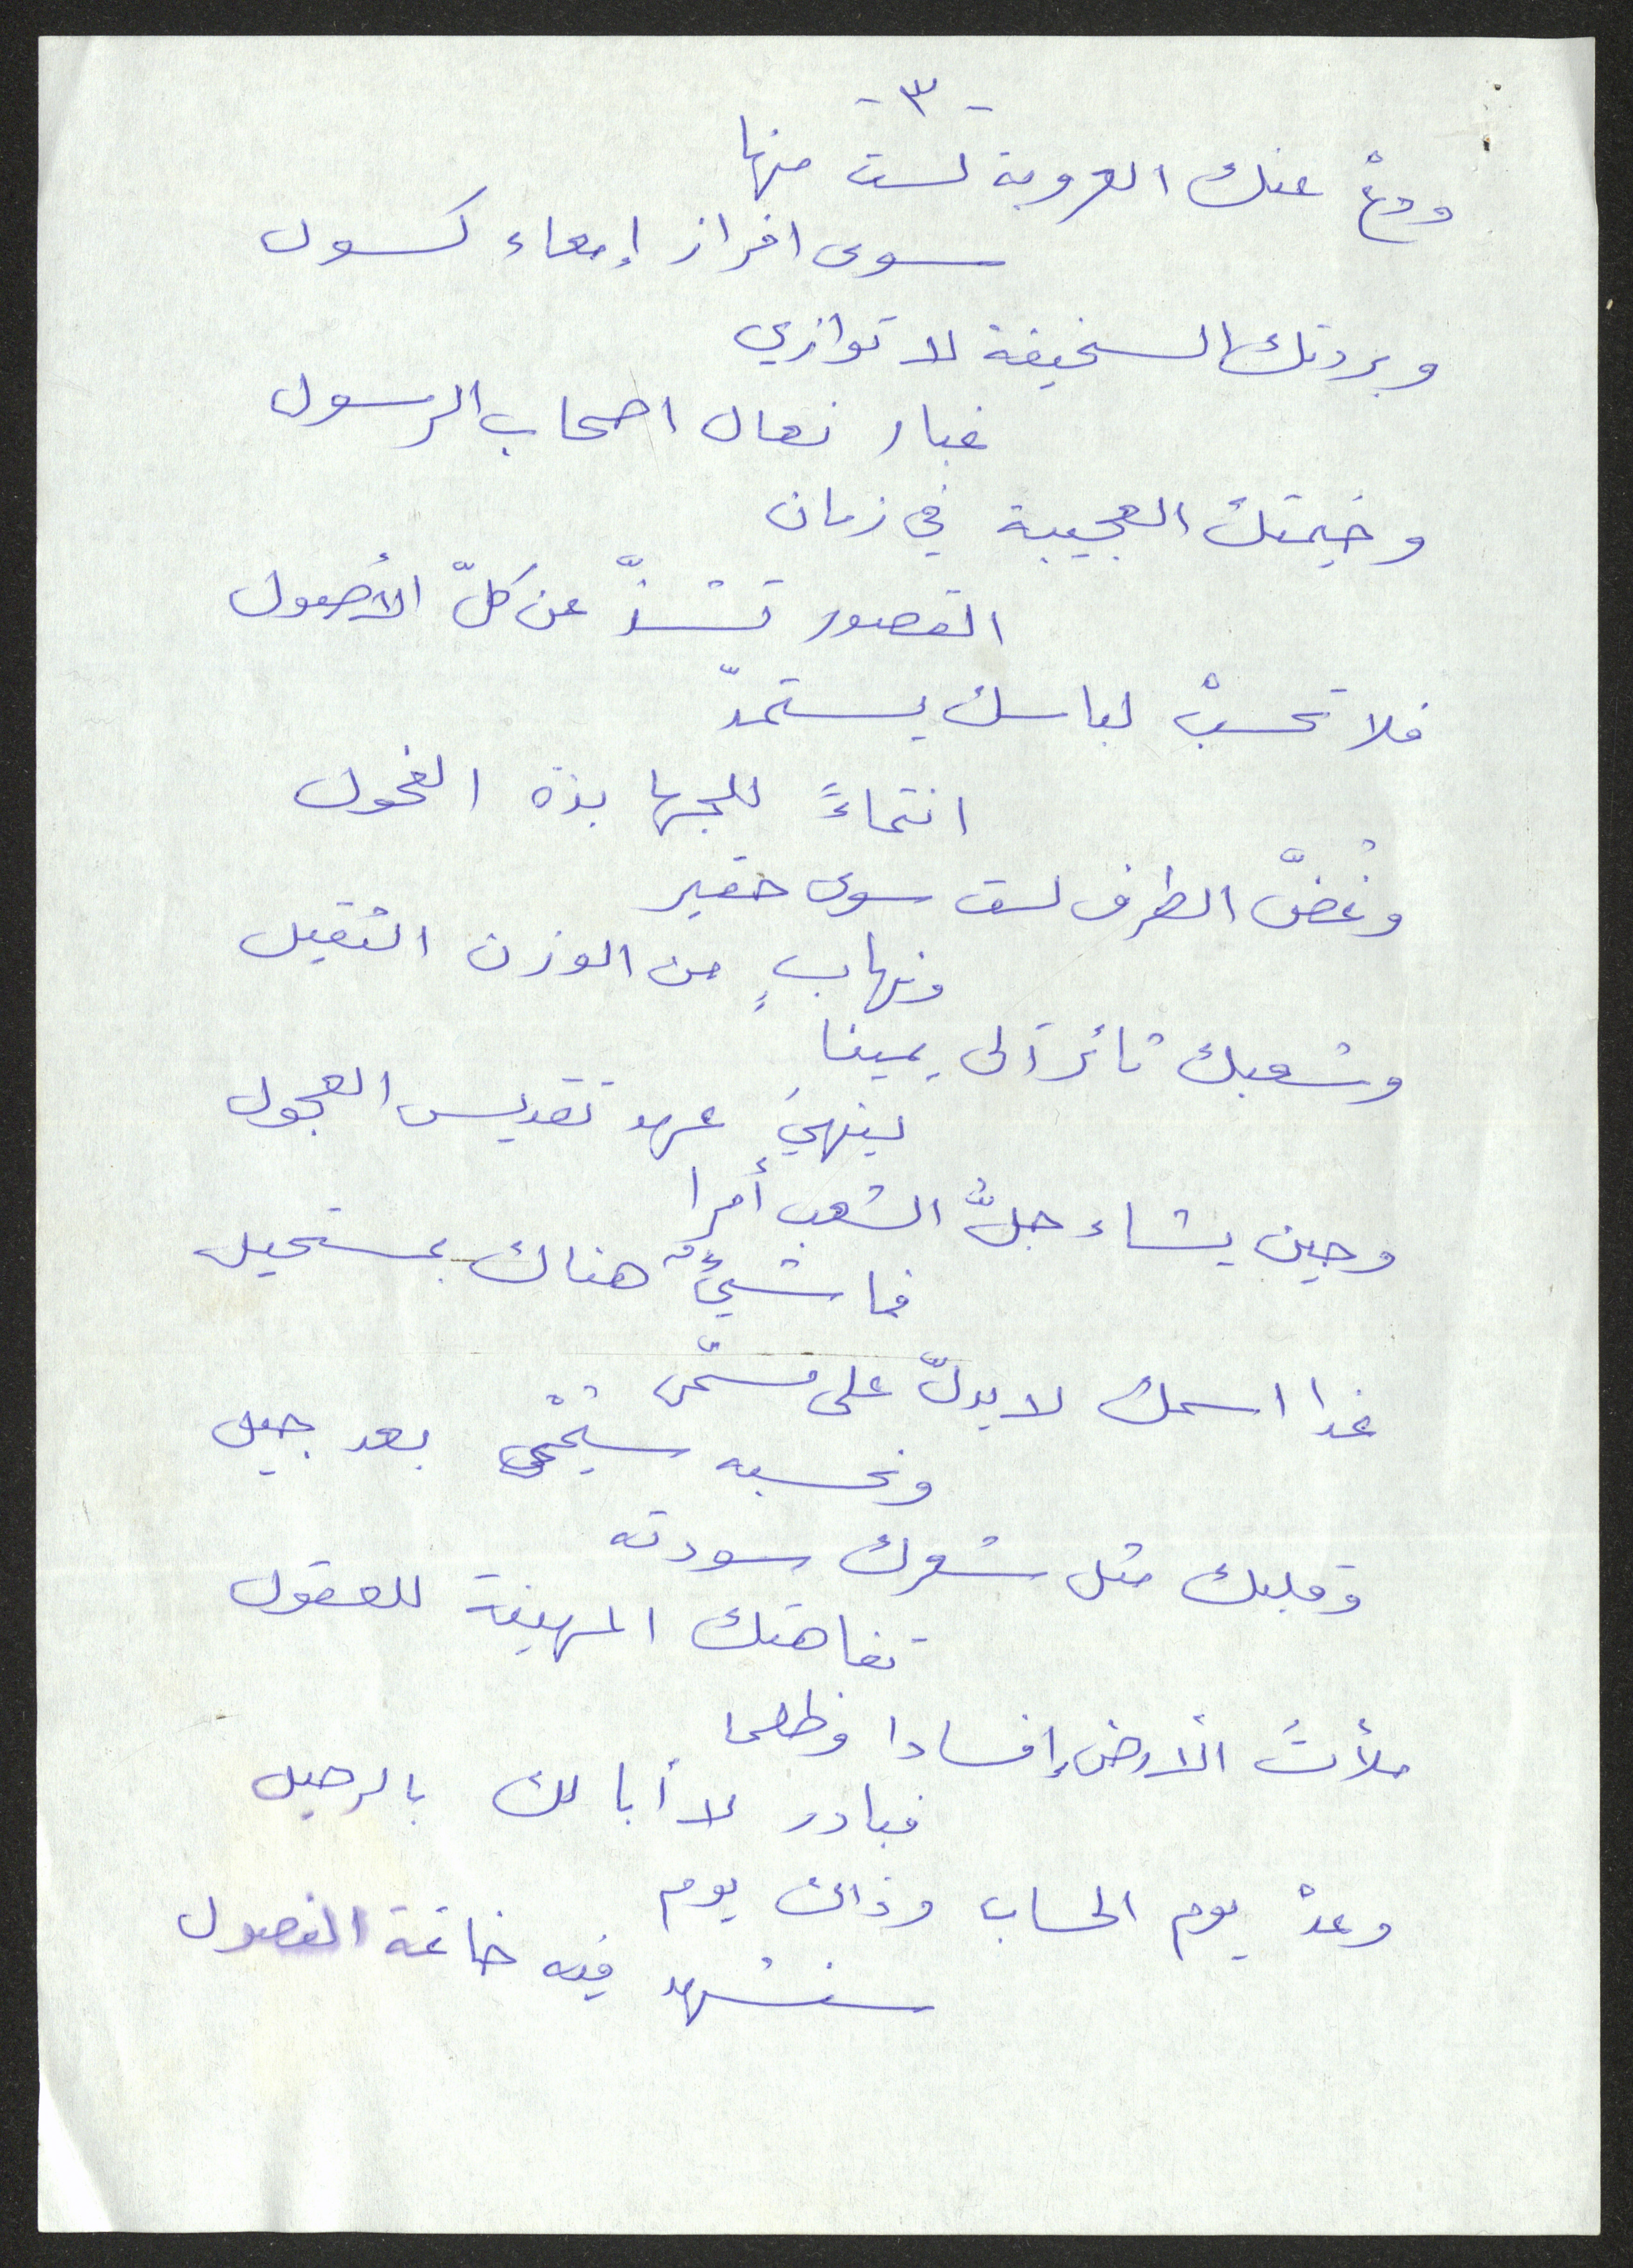 - ٣ -
ودعْ عنك العروبة لست منها
سوى افراز إمعاء كسول
وبردتك السخيفة لا توازي
غبار نعال اصحاب الرسول
وخيمتك العجيبة في زمان
القصور تشذّ عن كلّ الأصول
فلا تحسبْ لباسك يستمدّ
انتماءً للجهابذة الفحول
وغُضَّ الطرف لست سوى حقير
ونهابٍ من الوزن الثقيل
وشعبك ثائر آلى يمينا
لينهيَ عهد تقديس العجول
وحين يشاء جلُّ الشعب أمرا
فما شيءٌ هناك بمستحيل
غدا اسمك لا يدلّ على مسمّى
ونحسبه سيُمْحى بعد جيل
وقلبك مثل شعرك سودته
تفاهتك المهينة للعقول
ملأتَ الأرض إفسادا وظلما
فبادر لا أبا لك بالرحيل
وعدْ يوم الحساب وذاك يوم
سنشهد فيه خاتمة الفصول